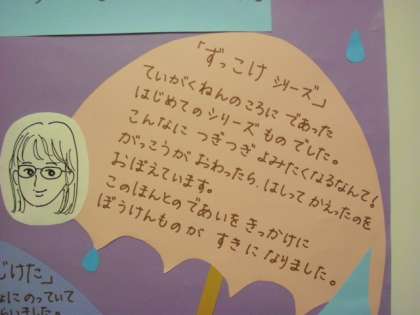 「ずっこけ シリーズ」
ていがくねんのころに であった
はじめてのシリーズ ものでした。
こんなに つぎつぎ よみたくなるなんて!
がっこうが おわったら、はしって かえったのを
おぼえています。
このほんとの であいを きっかけに
ぼうけんものが すきに なりました。
じけた」
にのっていて
らいました。